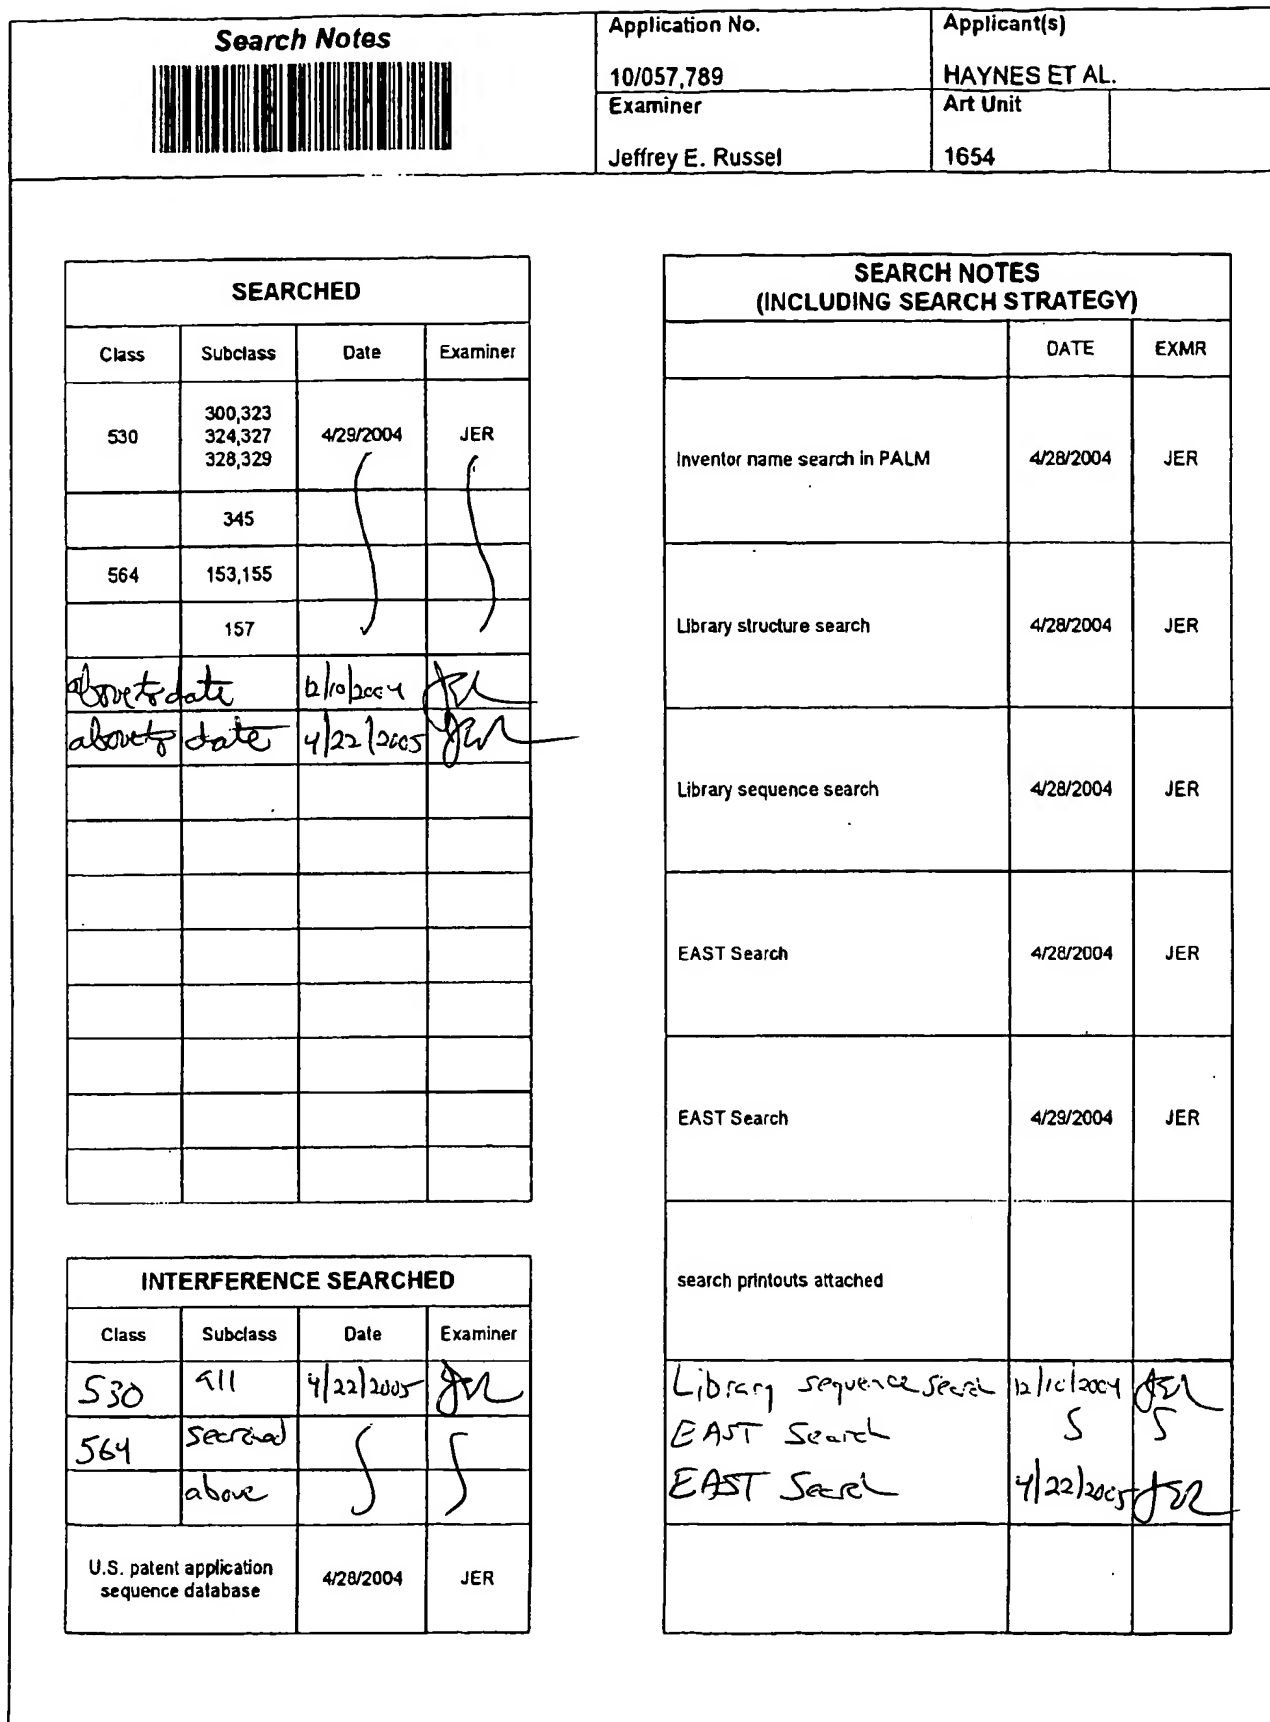 Search Notes
Application No.
10/057,789
Applicant(s)
HAYNES ET AL.
Examiner
Jeffrey E. Russel
Art Unit
1654
SEARCHED
Class Subclass Date Examiner
530 300,323 324,327 328,329 4/29/2004 JER
345
564 153,155
157
above to date 12/10/2004 JER
above to date 4/22/2005 JER
INTERFERENCE SEARCHED
Class Subclass Date Examiner
530 all 4/22/2005 JER
564 searched
above
U.S. patent application
sequence database 4/28/2004 JER
SEARCH NOTES
(INCLUDING SEARCH STRATEGY)
DATE EXMR
Inventor name search in PALM 4/28/2004 JER
Library structure search 4/28/2004 JER
Library sequence search 4/28/2004 JER
EAST Search 4/28/2004 JER
EAST Search 4/29/2004 JER
search printouts attached
Library sequence search 12/10/2004 JER
EAST Search
EAST Search 4/22/2005 JER